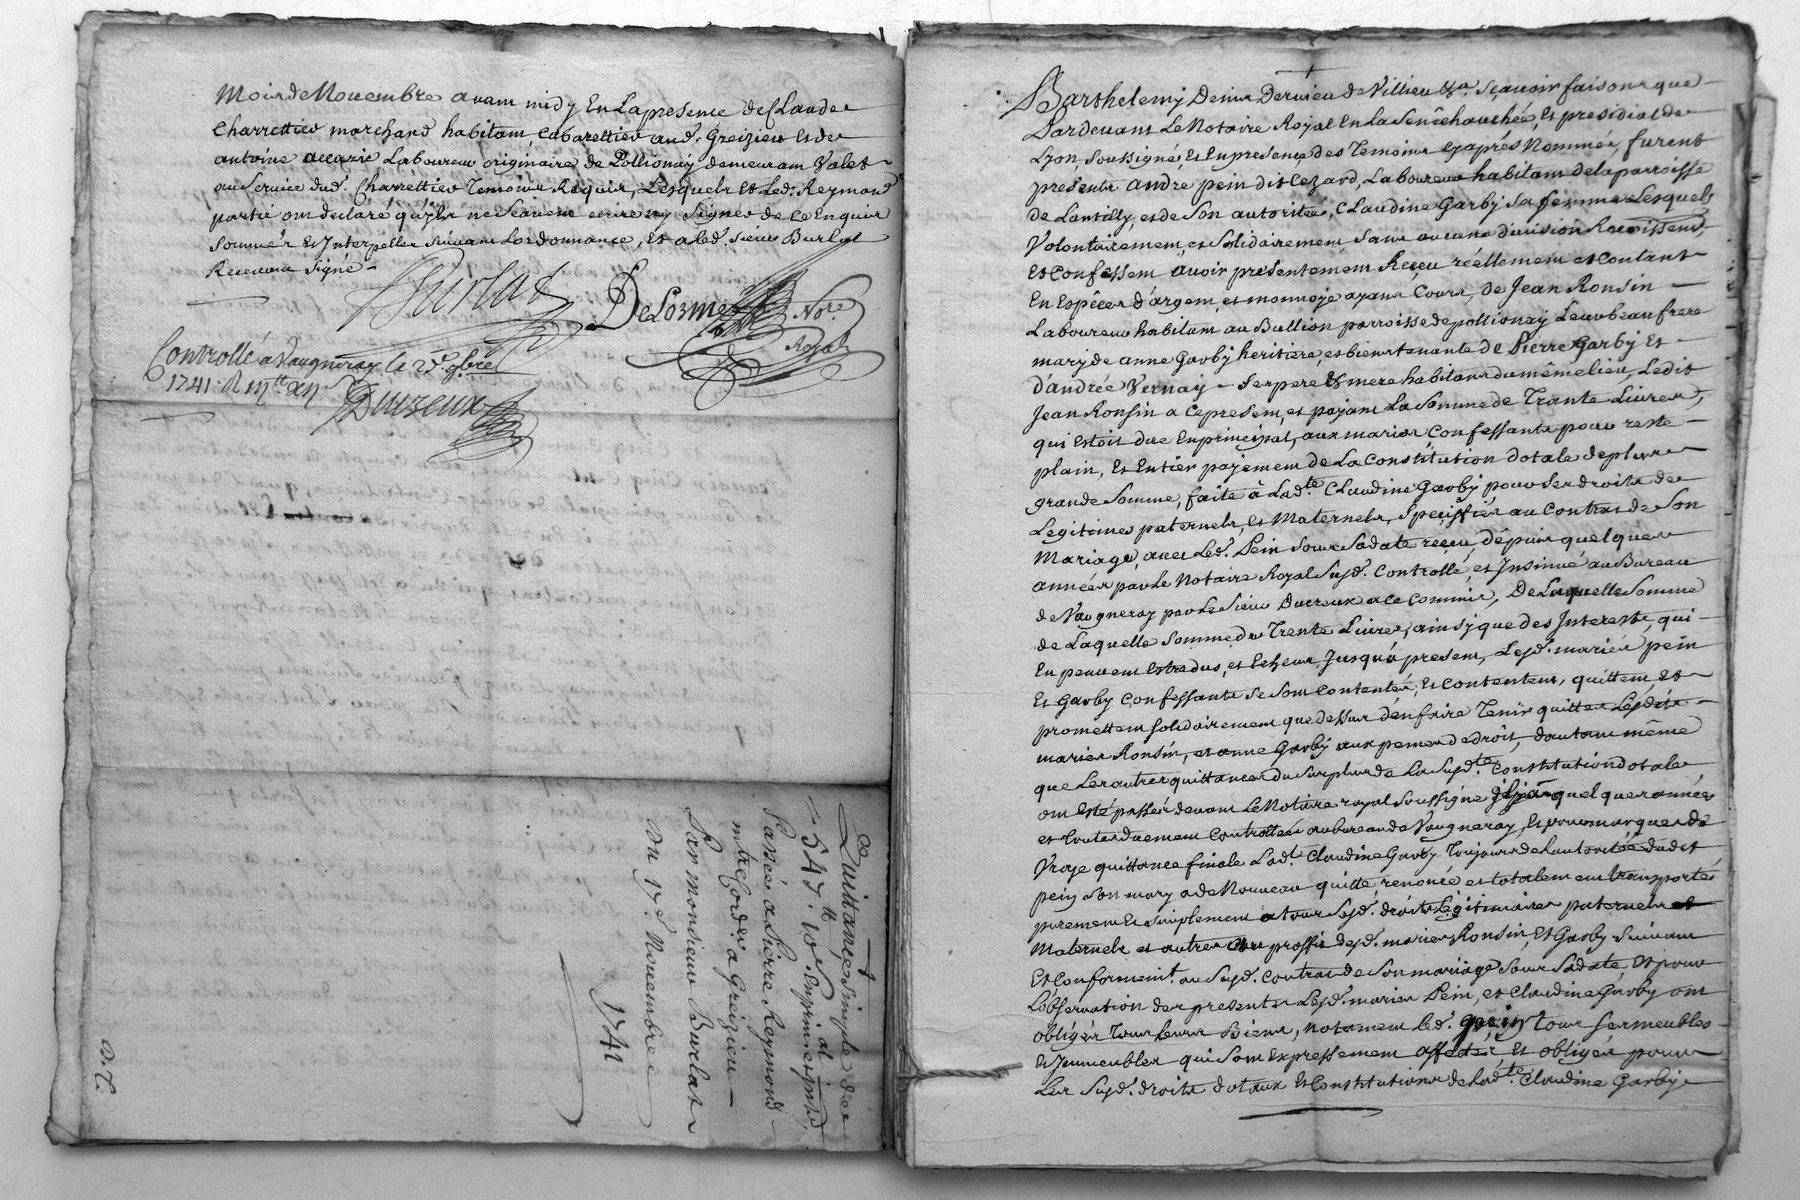 Mois de Novembre avam midy En La presence de Claude
Charrettier marchand habitam Cabarettier aud. Greizieu Et de
antoine accarie Laboureur originaire de Pollionay demeuram Valet
au Service dud. Charrettier Temoins Requis, Lesquels Et Led. Reymond
partie om declaré qu'ils ne Scavem ecrire ny Signer de ce Enquis
Sommér Et Interpeller Suivam Lordonnance, Et a led. Sieur Burlat
Recevam Signé
Burlat
DeLorme Nore.
Royal
Controllé a Vaugneray le 2 9bre
1741. R
Ducreux
Quittance Simple de
547.tt 10 s. En prin.al
Passée a Pierre Reymond
a Greizieu
Par monsieur Burlat
Du 17e. Novembre
1741
Barthelemy Denis Dervieu de Villieu &a. Scavoir faisons que
Pardevant Le Notaire Royal En La Senêchaucheé, Et presidial de
Lyon, Soussigné, Et En presence des Temoins cyaprés Nommés, furent
presents andre pein dit Lezard, Laboureur habitam de la parroisse
de Lantilly, et de Son autorité, CLaudine Garby Sa femme Lesquels
Volontairemem, et Solidairemem Sans aucune division Reconissem,
Et Confessem àvoir presentemem Reçeu réellemem et Contant
En Espêces d'argem et monnoye ayans Cours, de Jean Ronsin
Laboureur habitam au Bullion parroisse de pollionay Leur beaufrere
mary de anne Garby heritiere, et bientenante de Pierre Garby Et
d'andrée Vernay Ses pere & mere habitans du même lieu, Ledit
Jean Ronsin a Ce presem, et payam La Somme de Trante Livres,
qui Estoit due En principal, aux mariés Confessants pour reste
plain, Et Entier payemem de La Constitution dotale de plus
grande Somme, faite à Lad.te CLaudine Garby pour Ses droits de
Legitimes paternels, Et Maternels, Speciffiés au Contrat de Son
Mariage, avec Led. Pein Sous Sa date reçeu, dépuis quelques
années par Le Notaire Royal Susd. Controllé, et Insinué au Bureau
de Vaugneray par Le Sieur Ducreux a ce Commis, De Laquelle Somme
de Laquelle Somme de Trente Livres, ainsy que des Interests, qui
En peuvem Estre dus, et Echeus, Jusqu'à presem, Lesd. mariés pein
Et Garby Confessants Se Som Contentés, Et Contentem, quittem Et
promettem Solidairemem que dessus d'en faire Tenir quittes Lesdits
mariés Ronsin, et anne Garby aux peines de droit, d'autam même
que Les autres quittances du Surplus de La Susd.te Constitution dotale
om Esté passées, devam Le Notaire royal Soussigné quelques années
et Toutes duemem Controllées au bureau de Vaugneray, Et pour marques de
Vraye quittance finale Lad.t Claudine Garby Toujours de L'autorité dudit
pein Son mary a de Nouveau quitté renoncé et totalemem transportés
puremem Et Simplemem a tous Sesd. droits Legitimaires paternels et
Maternels et autres au proffit desd. mariés Ronsin, Et Garby Suivam
Et Conformem.t au Susd. Contrat de Son mariage, Sous Sa daté, Et pour
L'observation des presentes Lesd. mariés Pein, et Claudine Garby om
obligés Tous Leurs Biens, notamem Led. pein Tous Ses meubles
Et Immeubles qui Som Expressemem affectés Et obligés pour
Les Susd. droits dotaux Et Constitutions de Lad.te Claudine Garby